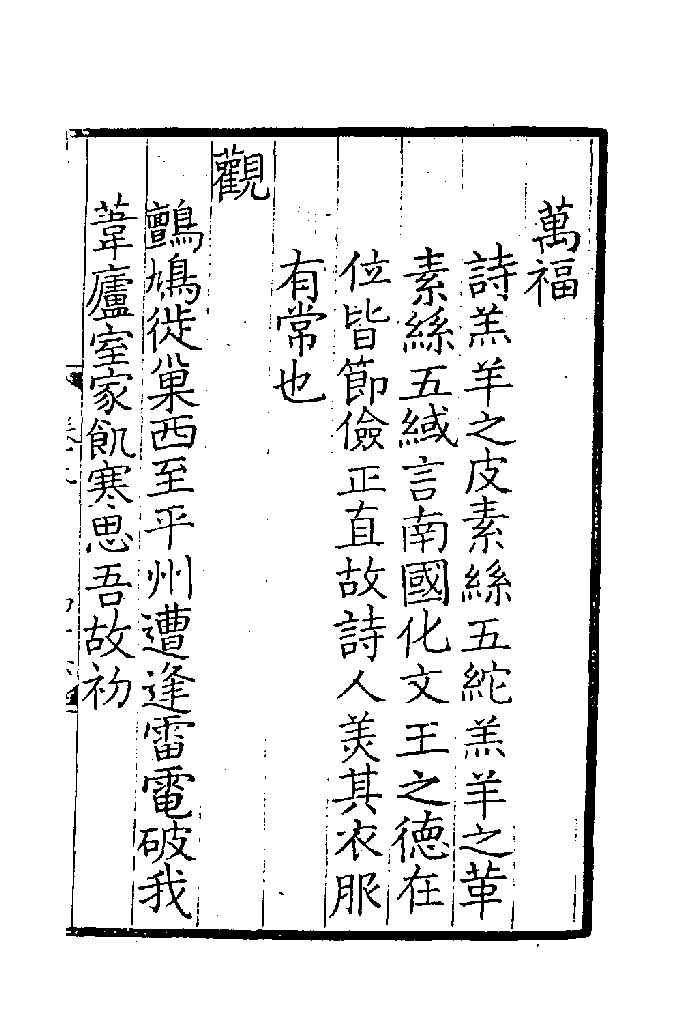 萬福
詩羔羊之皮素絲五紽羔羊之革
素絲五緎言南國化文王之德在
位皆節儉正直故詩人羙其衣服
有常也
觀
鸇鳩徙巢西至平州遭逢雷電破我
葦廬室家飢寒思吾故初